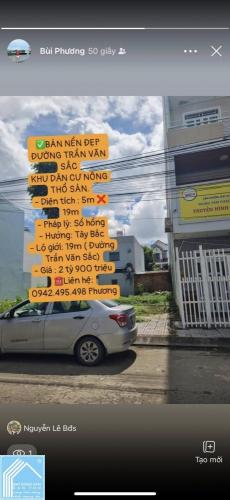 Bùi Phương 50 giây
✅BÁN NỀN ĐẸP
ĐƯỜNG TRẦN VĂN
SẮC
KHU DÂN CƯ NÔNG
THỔ SẢN.
- Diện tích : 5m ❌
19m
- Pháp lý: Sổ hồng
- Hướng: Tây Bắc
- Lộ giới: 19m ( Đường
Trần Văn Sắc)
- Giá : 2 tỷ 900 triệu
☎️Liên hệ:
0942.495.498 Phương
Nguyễn Lê Bđs
1
Tạo mới